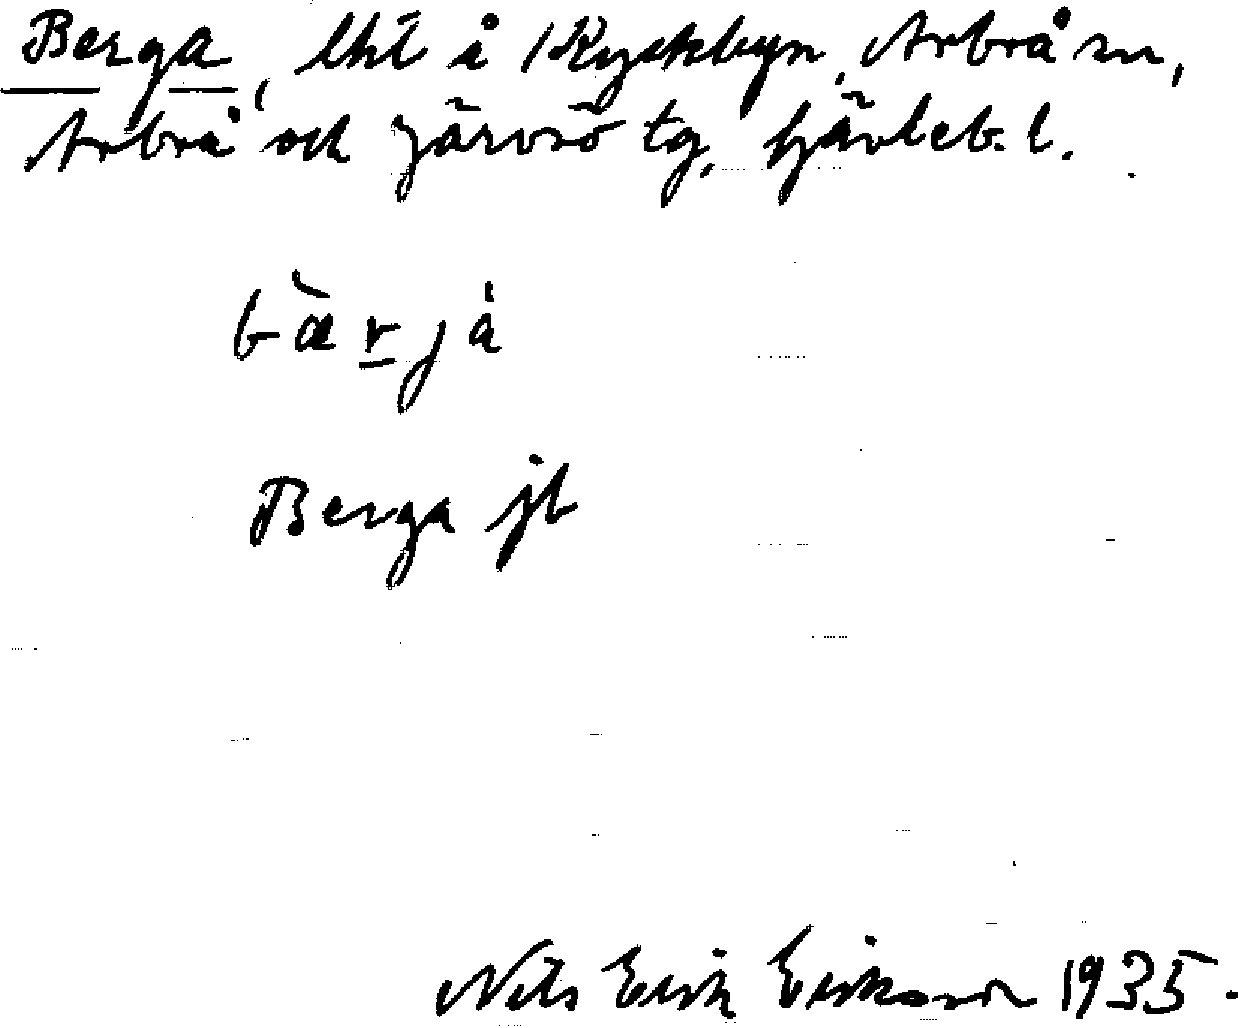 Berga, lht i Kyrkbyn, Arbrå sn,
Arbrå och Järvsö tg, Gävleb. l.
bàrjá
Berga jb
Nils Erik Eriksson 1935.